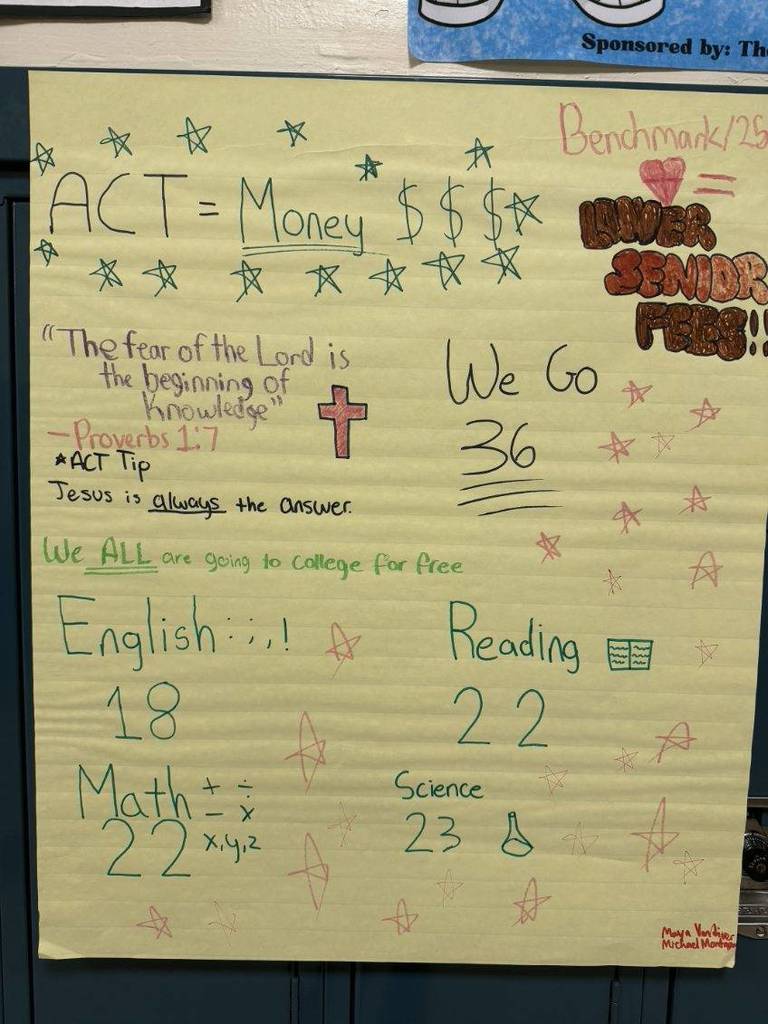 Sponsored by: The
Benchmark/25
=
LOWER
SENIOR
FEES!!
ACT = Money $ $ $
"The fear of the Lord is
the beginning of
Knowledge"
- Proverbs 1:7
*ACT Tip
Jesus is always the answer.
We Go
36
We ALL are going to college for free
English : ; , !
18
Reading
22
Math + ÷
- x
22 x,y,z
Science
23
Maya
Michael